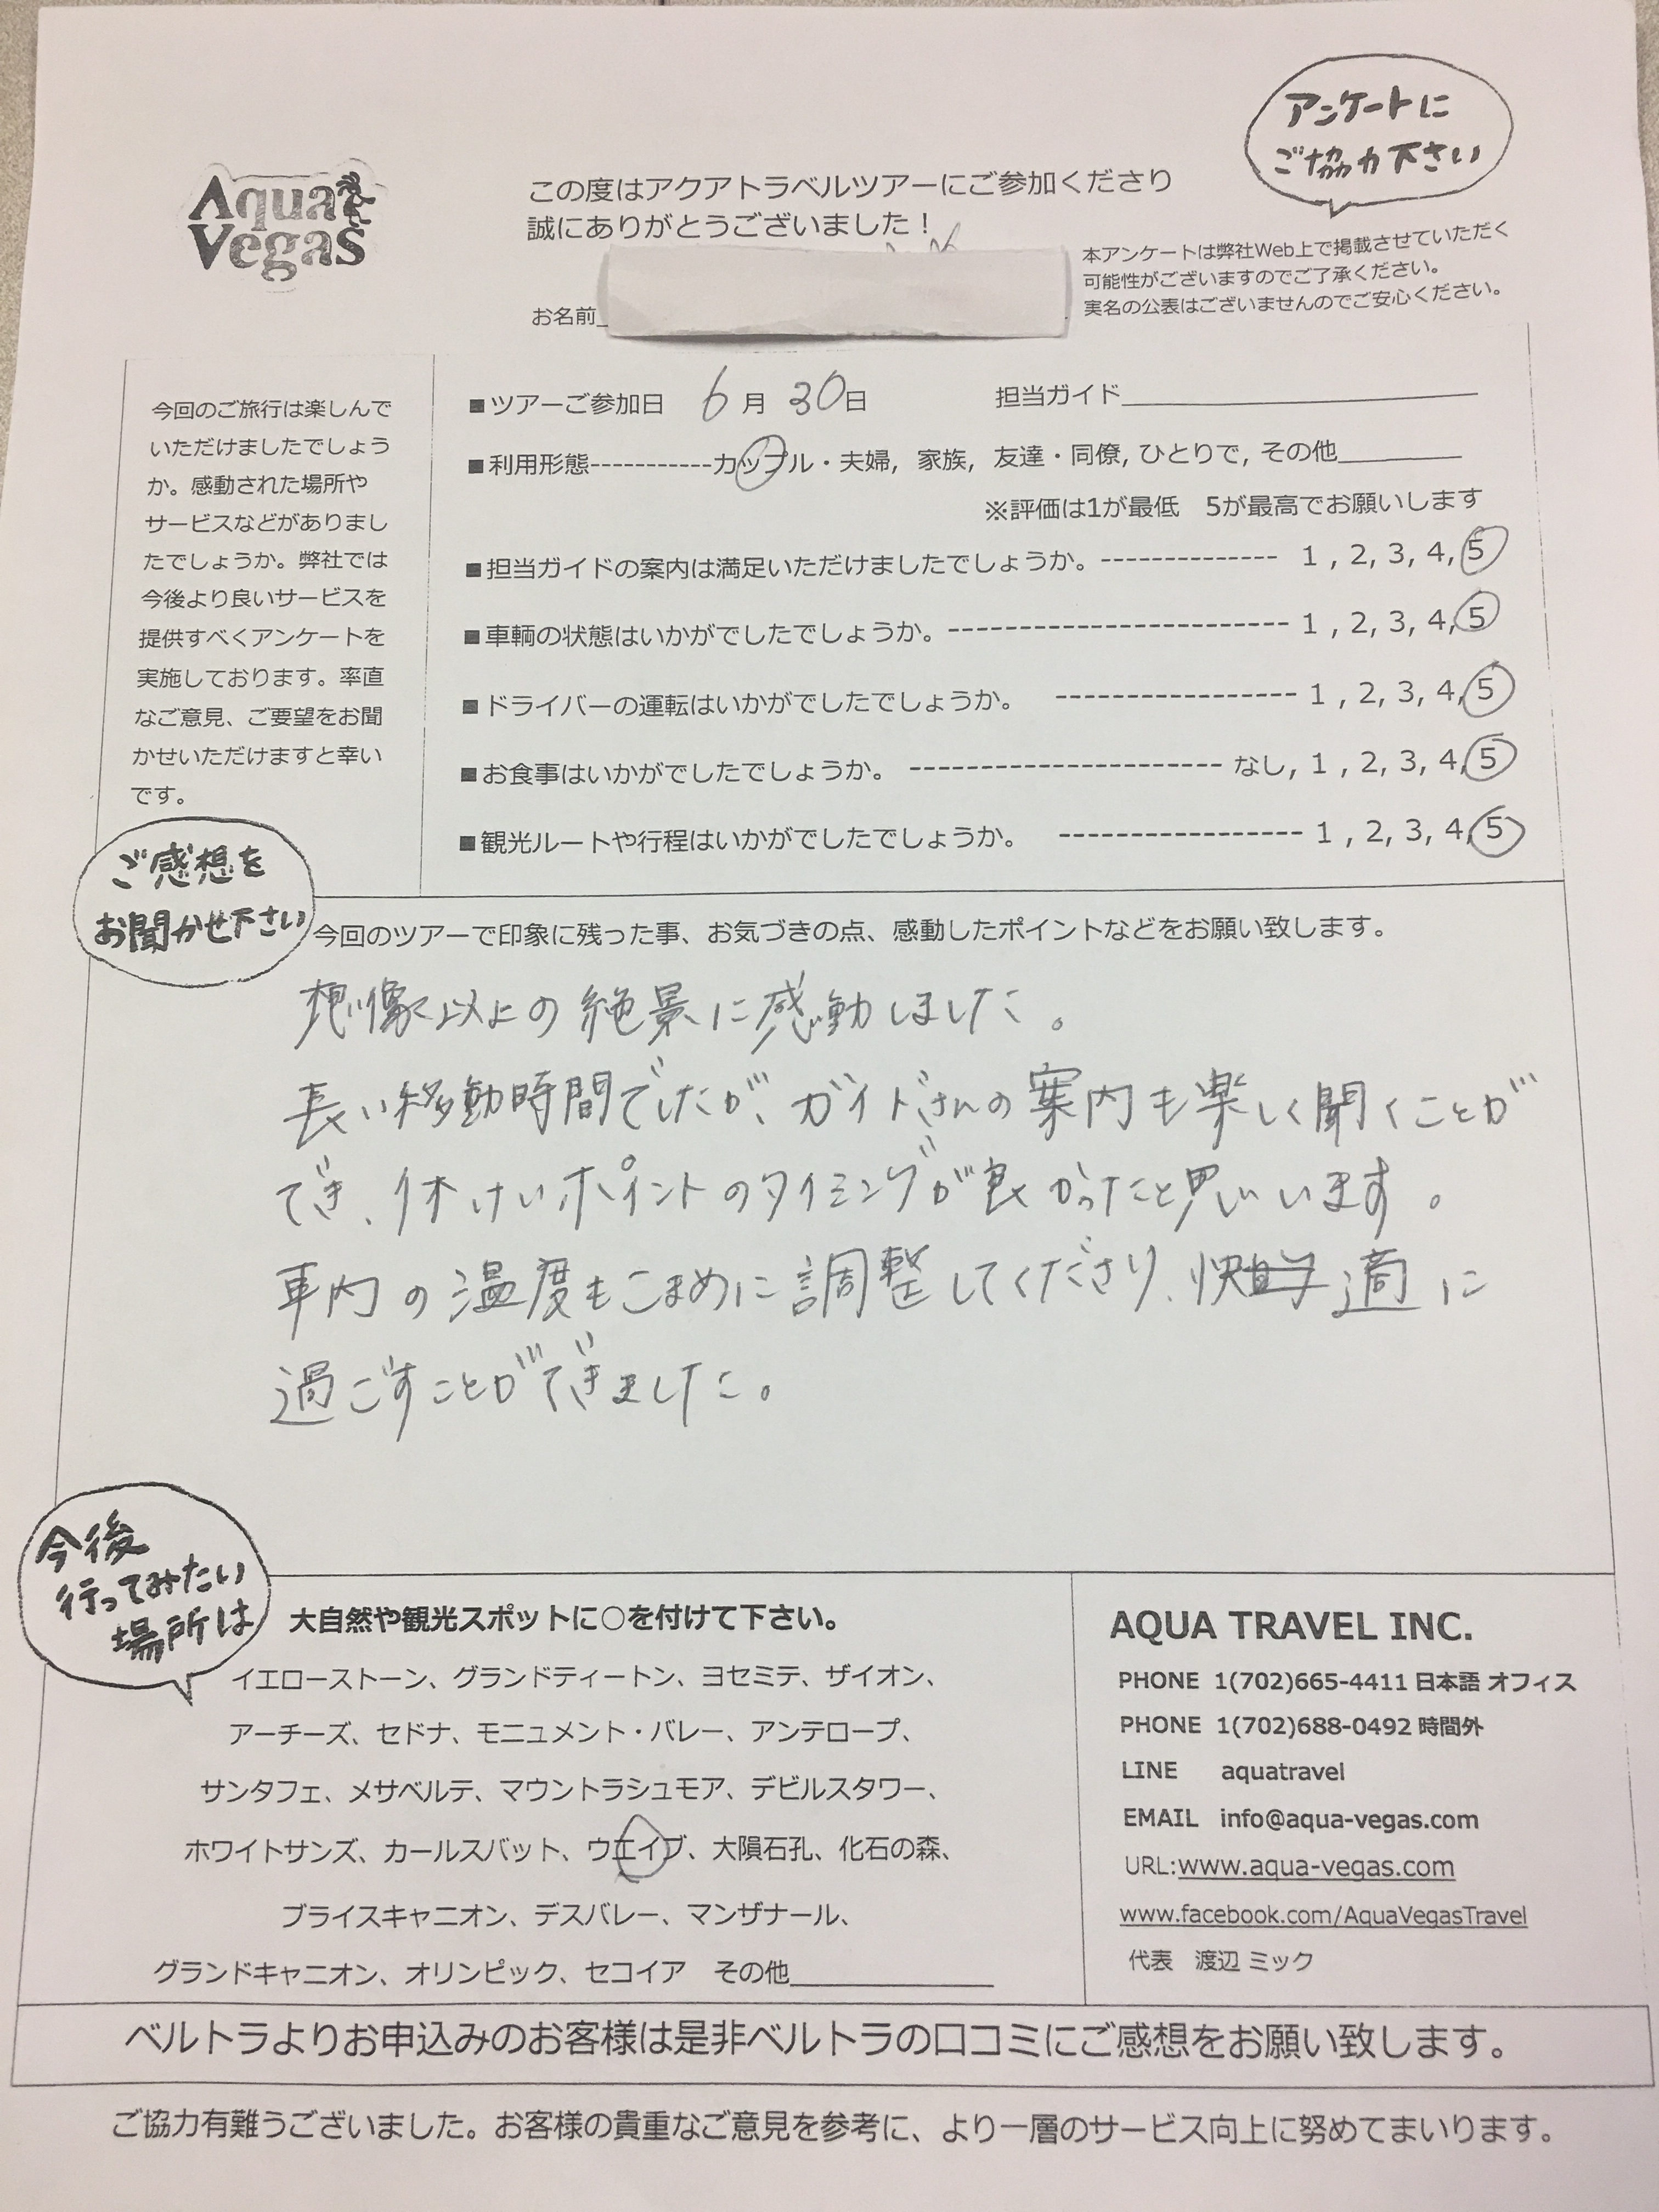 アンケートに
ご協力下さい
Aqua
Vegas
この度はアクアトラベルツアーにご参加くださり
誠にありがとうございました！
お名前
本アンケートは弊社Web上で掲載させていただく
可能性がございますのでご了承ください。
実名の公表はございませんのでご安心ください。
今回のご旅行は楽しんで
いただけましたでしょう
か。感動された場所や
サービスなどがありまし
たでしょうか。弊社では
今後より良いサービスを
提供すべくアンケートを
実施しております。率直
なご意見、ご要望をお聞
かせいただけますと幸い
です。
■ツアーご参加日 6月30日 担当ガイド
■利用形態-----------カップル・夫婦, 家族, 友達・同僚, ひとりで, その他
※評価は1が最低 5が最高でお願いします
■担当ガイドの案内は満足いただけましたでしょうか。------------- 1 , 2, 3, 4, 5
■車輌の状態はいかがでしたでしょうか。------------------------ 1 , 2, 3, 4, 5
■ドライバーの運転はいかがでしたでしょうか。 ----------------- 1 , 2, 3, 4, 5
■お食事はいかがでしたでしょうか。 ---------------------- なし, 1 , 2, 3, 4, 5
■観光ルートや行程はいかがでしたでしょうか。 ----------------- 1 , 2, 3, 4, 5
ご感想を
お聞かせ下さい
今回のツアーで印象に残った事、お気づきの点、感動したポイントなどをお願い致します。
想像以上の絶景に感動しました。
長い移動時間でしたが、ガイドさんの案内も楽しく聞くことが
でき、休けいポイントのタイミングが良かったと思います。
車内の温度もこまめに調整してくださり、快適に
過ごすことができました。
今後
行ってみたい
場所は
大自然や観光スポットに○を付けて下さい。
イエローストーン、グランドティートン、ヨセミテ、ザイオン、
アーチーズ、セドナ、モニュメント・バレー、アンテロープ、
サンタフェ、メサベルテ、マウントラシュモア、デビルスタワー、
ホワイトサンズ、カールスバット、ウエイブ、大隕石孔、化石の森、
ブライスキャニオン、デスバレー、マンザナール、
グランドキャニオン、オリンピック、セコイア その他
AQUA TRAVEL INC.
PHONE 1(702)665-4411 日本語 オフィス
PHONE 1(702)688-0492 時間外
LINE aquatravel
EMAIL info@aqua-vegas.com
URL:www.aqua-vegas.com
www.facebook.com/AquaVegasTravel
代表 渡辺 ミック
ベルトラよりお申込みのお客様は是非ベルトラの口コミにご感想をお願い致します。
ご協力有難うございました。お客様の貴重なご意見を参考に、より一層のサービス向上に努めてまいります。